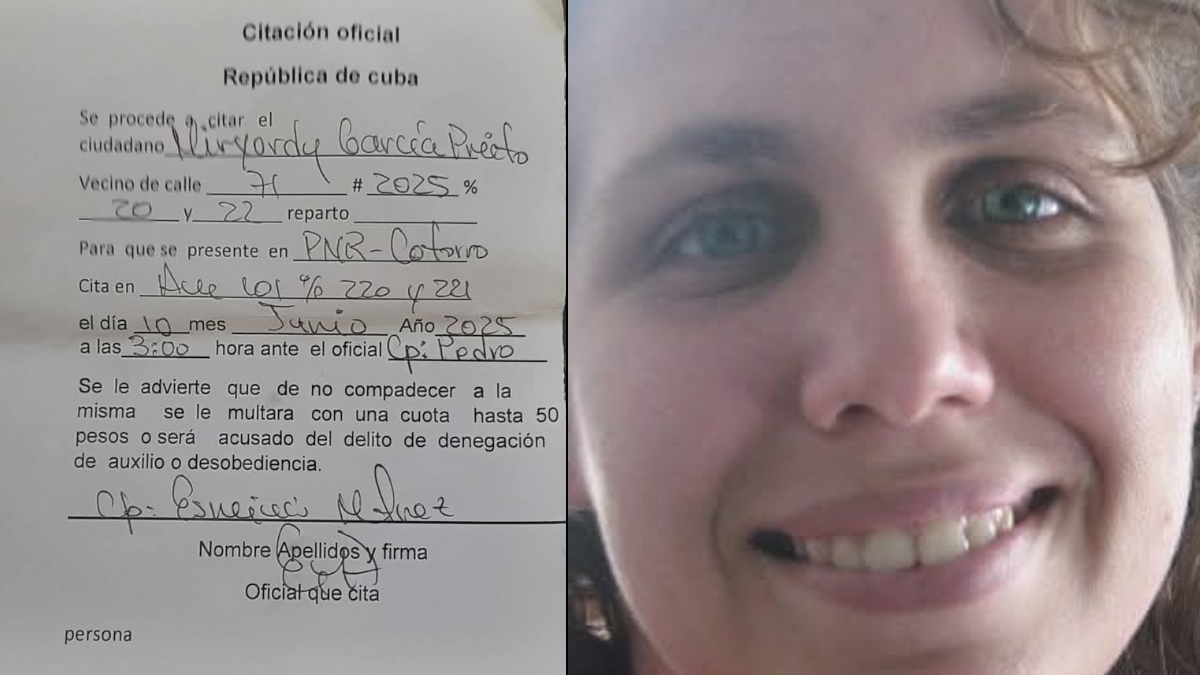 Citación oficial
República de cuba
Se procede a citar el
ciudadano Miryordy García Prieto
Vecino de calle 71 # 2025 %
20 y 22 reparto
Para que se presente en PNR-Cotorro
Cita en Ave 101 % 220 y 221
el día 10 mes Junio Año 2025
a las 3:00 hora ante el oficial Cp: Pedro
Se le advierte que de no compadecer a la
misma se le multara con una cuota hasta 50
pesos o será acusado del delito de denegación
de auxilio o desobediencia.
Cp:
Nombre Apellidos y firma
Oficial que cita
persona